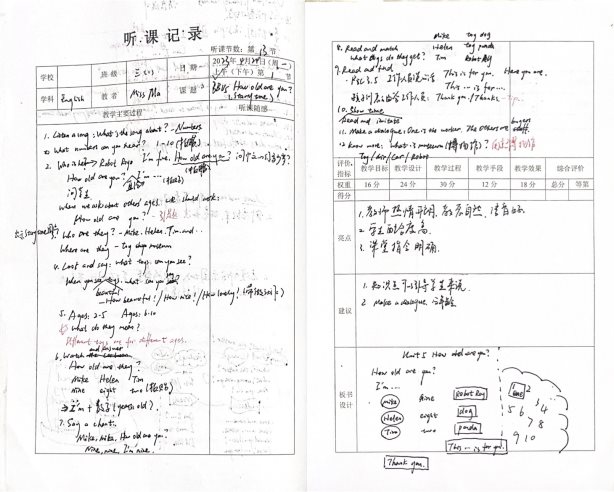 听课记录
听课节数：第 13 节
学校
班级 三(1)
日期
上午(下午)第 1 节
学科 English
教者 Miss Ma
课题 3B U5 How old are you?
(Story time)
教学主要过程
听课随感
1. Listen a song: What's the song about? - Numbers
What numbers can you hear? 1-10
2. Who is he? → Robot Roy I'm five. How old are you?
How old are you? I'm ...
问学生
When we ask about others ages, we should work:
How old are you?
3. Who are they? - Mike, Helen, Tim and...
Where are they - Toy shop museum
4. Look and say: What toys can you see?
When you see toys, what can you say?
beautiful
- How beautiful! / How nice! / How lovely!
5. Ages: 2-5 Ages: 6-10
What do they mean?
Different toys are for different ages.
6. Watch and answer
How old are they?
Mike Helen Tim
nine eight two
⇒ I'm + 数字 (years old).
7. Say a chant.
Mike, Mike, How old are you.
Nine, nine, I'm nine.
Mike toy dog
8. Read and match Helen toy panda
What toys do they get? Tim Robot Roy
9. Read and find
This is for you. Here you are.
This ... is for...
Thank you! / Thanks
10. Show time
Read and imitate
11. Make a dialogue: One is the worker. The others are buyers
12. Know more: What is museum (博物馆)?
Toy / Air / Car / Robot
评价指标 教学目标 教学设计 教学过程 教学手段 教学效果 综合评价
权重 16分 24分 30分 12分 18分 总分 等第
得分
亮点
1. 教师热情开朗，教态自然，语音好。
2. 学生配合度高。
3. 课堂指令明确。
建议
1. 知识点可引导学生来说
2. Make a dialogue,
板书设计
Unit 5 How old are you?
How old are you?
I'm ...
Mike nine Robot Roy
Helen eight dog
Tim two panda
This ... is for you.
Thank you.
1 one 2
3 4
5 6
7 8
9 10